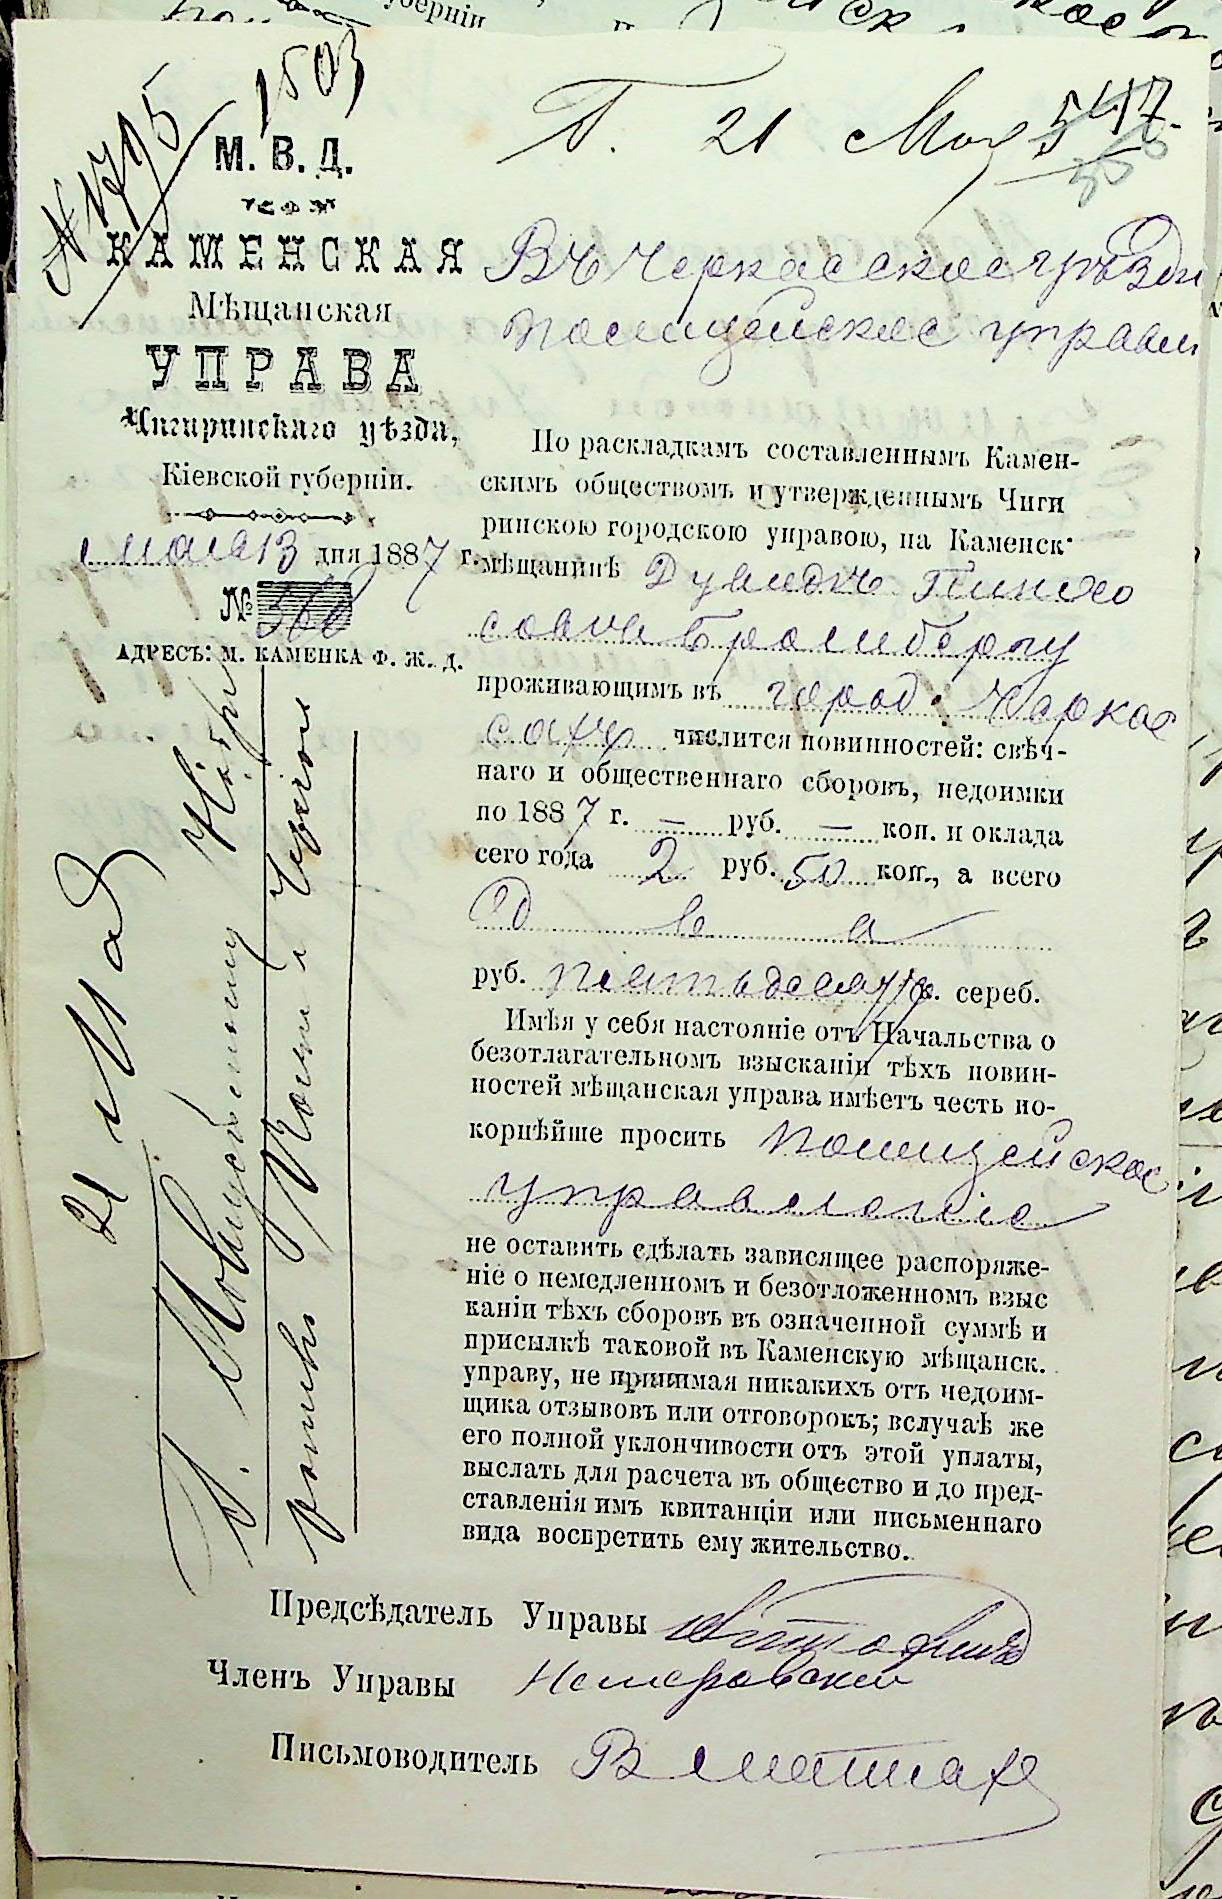 № 1795
1503
М. В. Д.
КАМЕНСКАЯ
Мѣщанская
УПРАВА
Чигиринскаго уѣзда,
Кіевской губерніи.
мая 13 дня 1887 г.
№ 560
АДРЕСЪ: М. КАМЕНКА Ф. Ж. Д.
21 Мая
П. 21 Мая 547.
Въ Черкасское уѣздн
полицейское управл
По раскладкамъ составленнымъ Камен-
скимъ обществомъ и утвержденнымъ Чиги
ринскою городскою управою, на Каменск
мѣщанинѣ Дувидъ Пинхо
совичъ Бролибергу
проживающимъ въ город. Черкас
сахъ числится повинностей: свѣч-
наго и общественнаго сборовъ, недоимки
по 1887 г. — руб. — коп. и оклада
сего года 2 руб. 50 коп., а всего
Два
руб. пятьдесятъ к. сереб.
Имѣя у себя настояніе отъ Начальства о
безотлагательномъ взысканіи тѣхъ повин-
ностей мѣщанская управа имѣетъ честь по-
корнѣйше просить полицейское
управленіе
не оставить сдѣлать зависящее распоряже-
ніе о немедленномъ и безотложенномъ взыс
каніи тѣхъ сборовъ въ означенной суммѣ и
присылкѣ таковой въ Каменскую мѣщанск.
управу, не принимая никакихъ отъ недоим-
щика отзывовъ или отговорокъ; вслучаѣ же
его полной уклончивости отъ этой уплаты,
выслать для расчета въ общество и до пред-
ставленія имъ квитанціи или письменнаго
вида воспретить ему жительство.
Предсѣдатель Управы
Членъ Управы Немеровскій
Письмоводитель